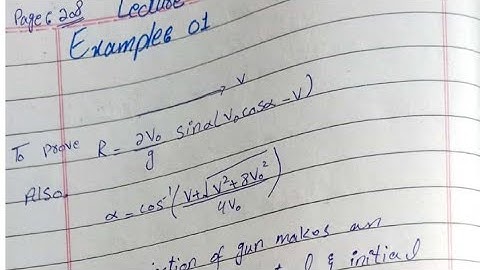 Page 6 208 Lecture
Examples 01
V
To prove R = 2V₀/g sinα(V₀cosα - V)
Also.
α = cos⁻¹(V+√(V²+8V₀²)/4V₀)
of gun makes an
& initial